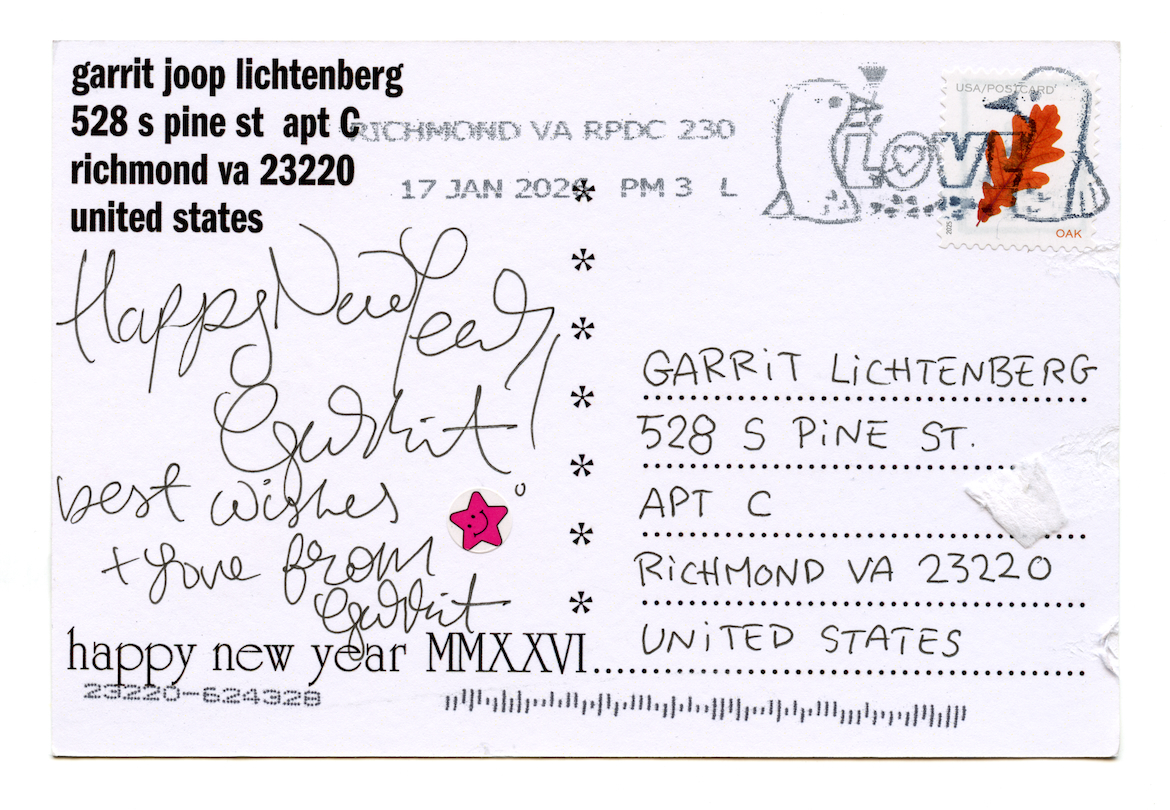 garrit joop lichtenberg
528 s pine st apt C
richmond va 23220
united states
RICHMOND VA RPDC 230
17 JAN 2026 PM 3 L
LOVE
USA/POSTCARD
2025
OAK
Happy New Year,
Garrit!
best wishes
+ love from
Garrit
happy new year MMXXVI
23220-624328
GARRiT LiCHTENBERG
528 S PiNE ST.
APT C
RiCHMOND VA 23220
UNiTED STATES